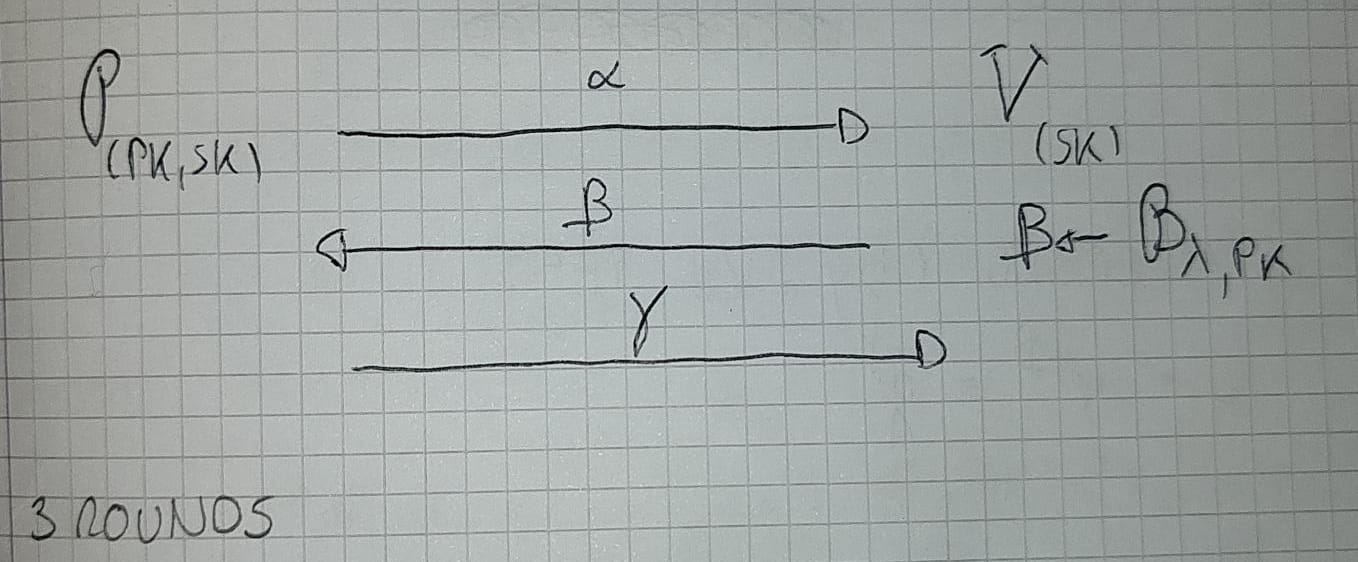 P α V
(PK,SK) (SK)
β β← B λ,PK
γ
3 ROUNDS